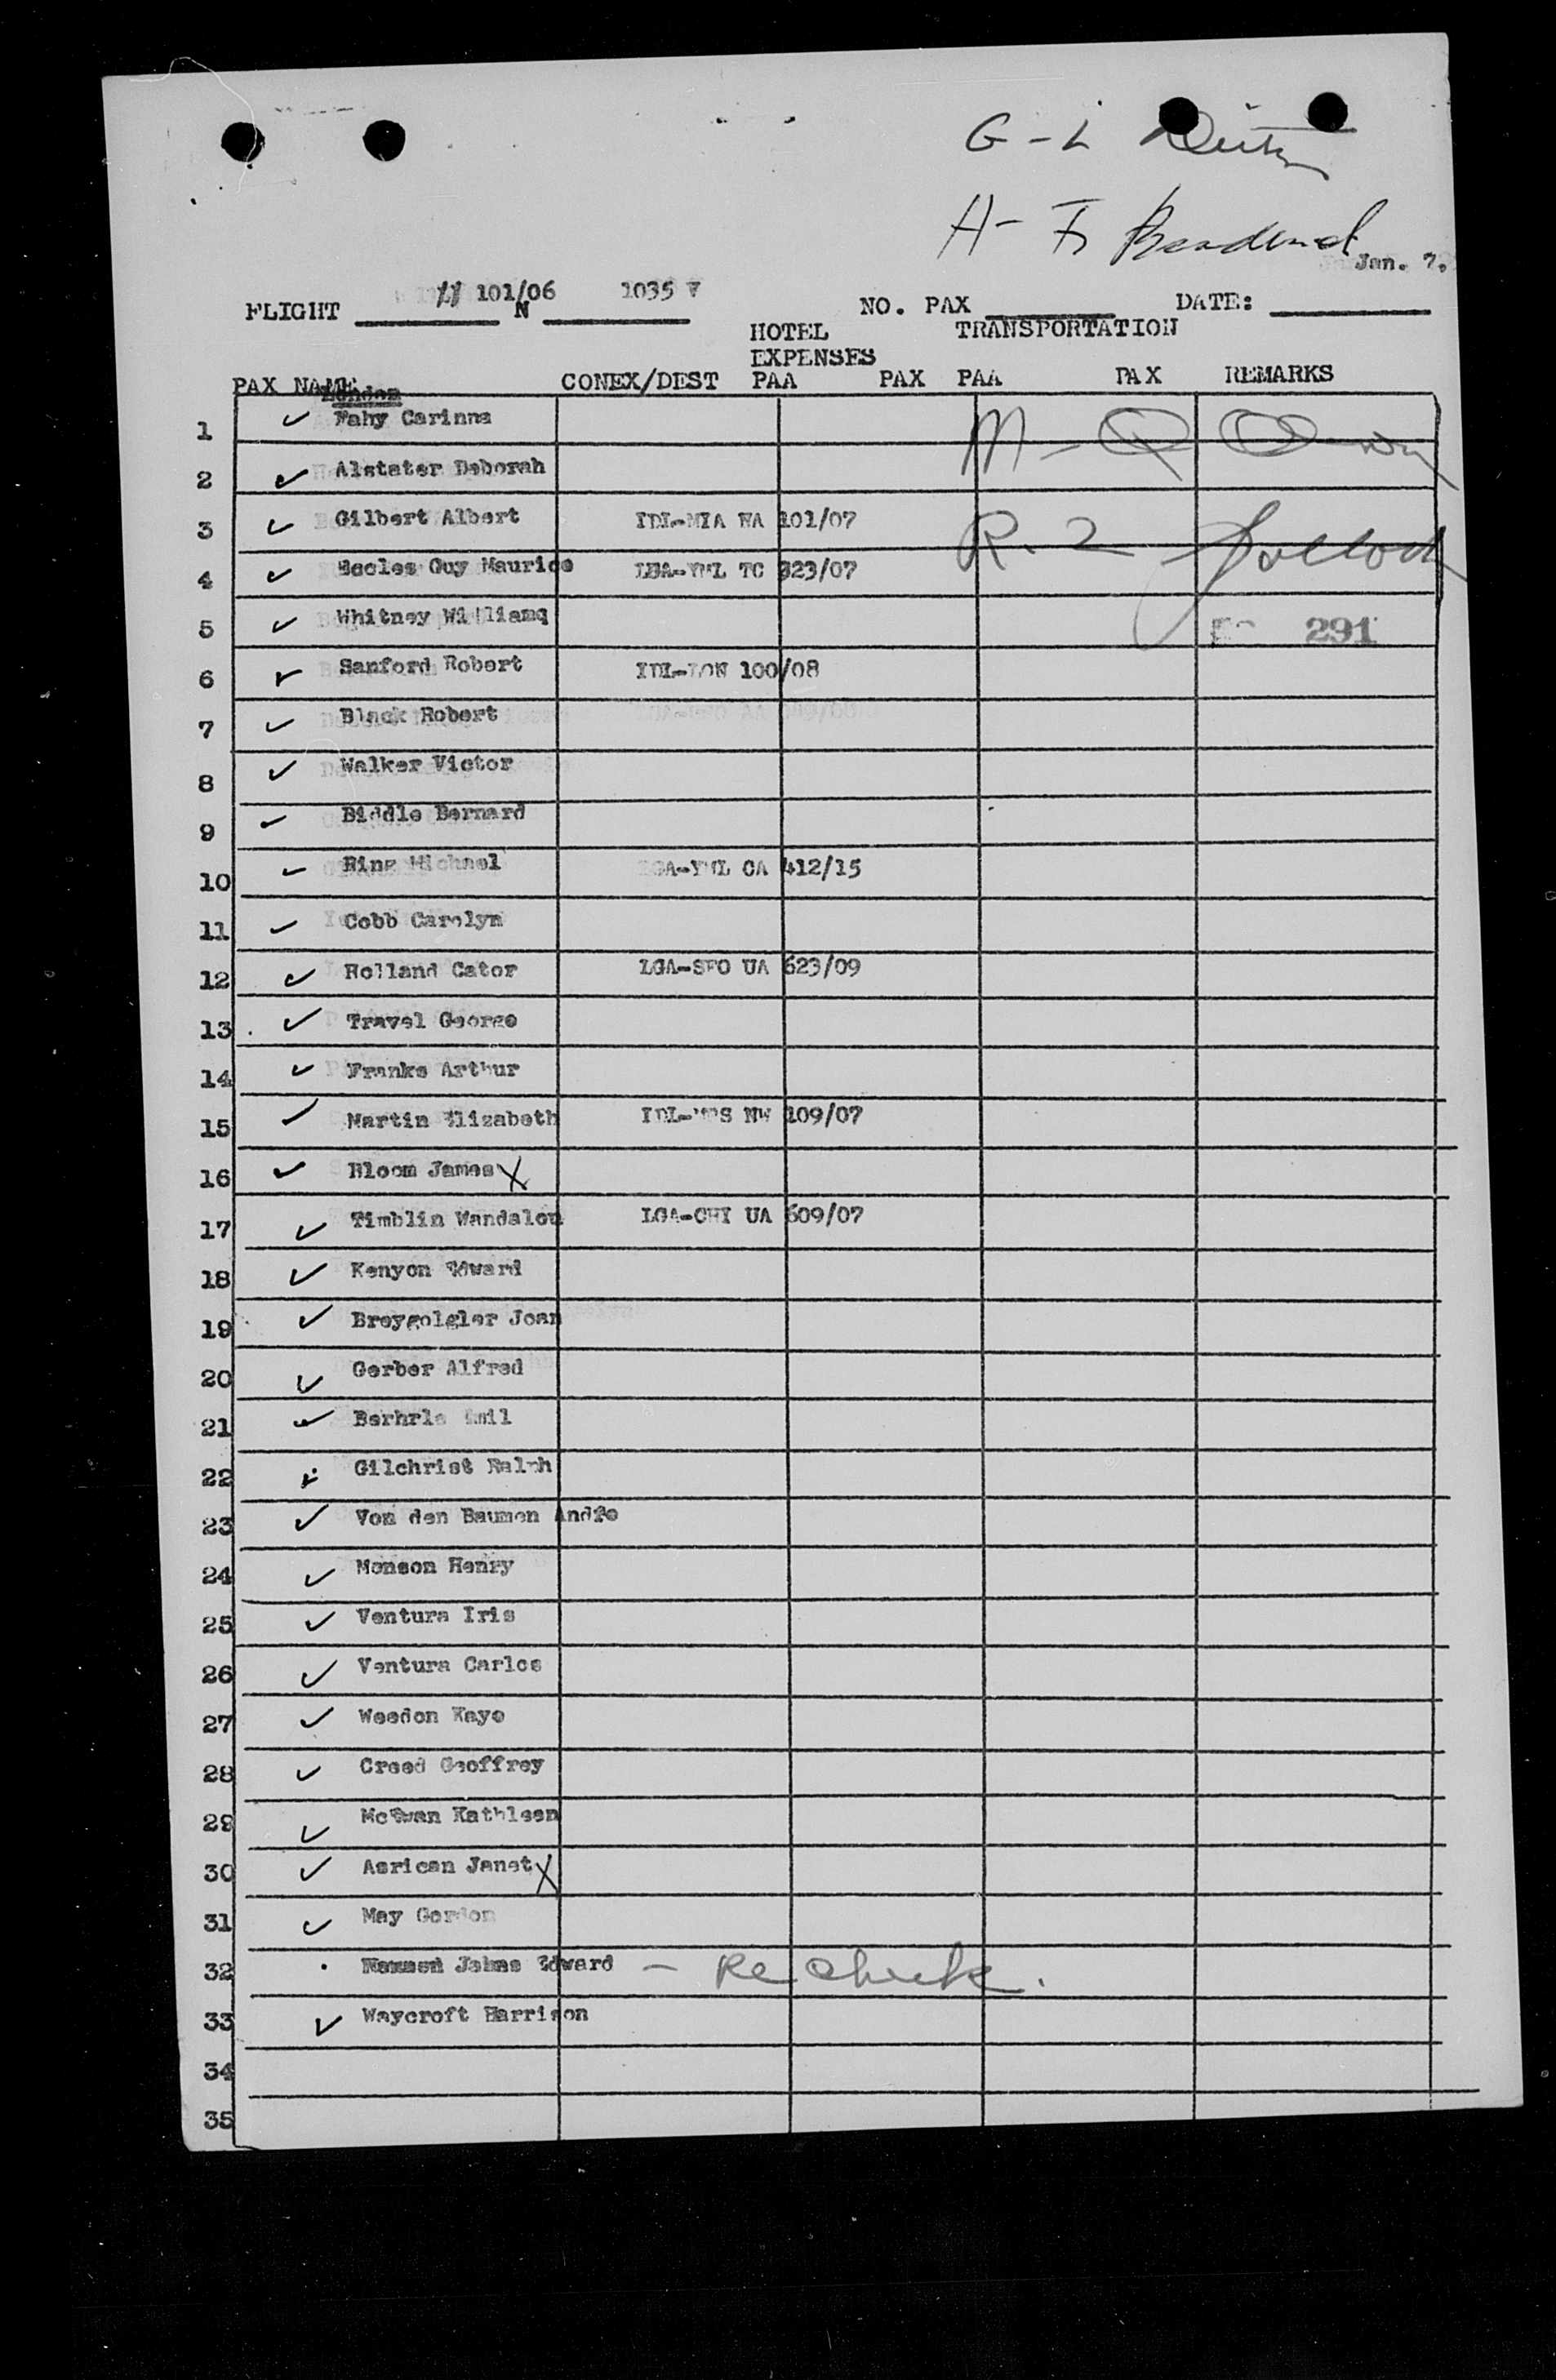 G - L
H - F
Jan. 7.
101/06 1035
FLIGHT N NO. PAX DATE:
HOTEL TRANSPORTATION
EXPENSES
PAX NAME CONEX/DEST PAA PAX PAA PAX REMARKS
London
1 Fahy Carinna M -
2 Alstater Deborah
3 Gilbert Albert IDL-MIA NA 101/07 R. 2 Pollock
4 Eccles Guy Maurice LGA-YUL TC 323/07
5 Whitney Williamq 291
6 Sanford Robert IDL-LON 100/08
7 Black Robert
8 Walker Victor
9 Biddle Bernard
10 Ring Michael LGA-YUL CA 412/15
11 Cobb Carolyn
12 Holland Cator LGA-SFO UA 623/09
13 Travel George
14 Franks Arthur
15 Martin Elizabeth IDL-MPS NW 109/07
16 Bloom James X
17 Timblin Wandalou LGA-CHI UA 609/07
18 Kenyon Edward
19 Breygolgler Joan
20 Gerber Alfred
21 Berhrle Emil
22 Gilchrist Ralph
23 Von den Baumen Andre
24 Monson Henry
25 Ventura Iris
26 Ventura Carlos
27 Weedon Kaye
28 Creed Geoffrey
29 McEwan Kathleen
30 Asrican Janet X
31 May Gordon
32 Edward - Recheck.
33 Waycroft Harrison
34
35